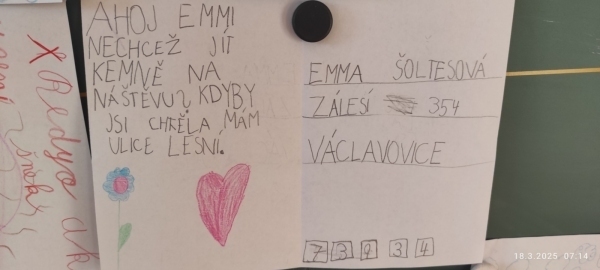 AHOJ EMMI
NECHCEŽ JÍT
KEMNĚ NA
NÁŠTĚVU? KDYBY
JSI CHŘĚLA MÁM
ULICE LESNÍ.
EMMA ŠOLTESOVÁ
ZÁLESÍ 354
VÁCLAVOVICE
739 34
18.3.2025 07:14